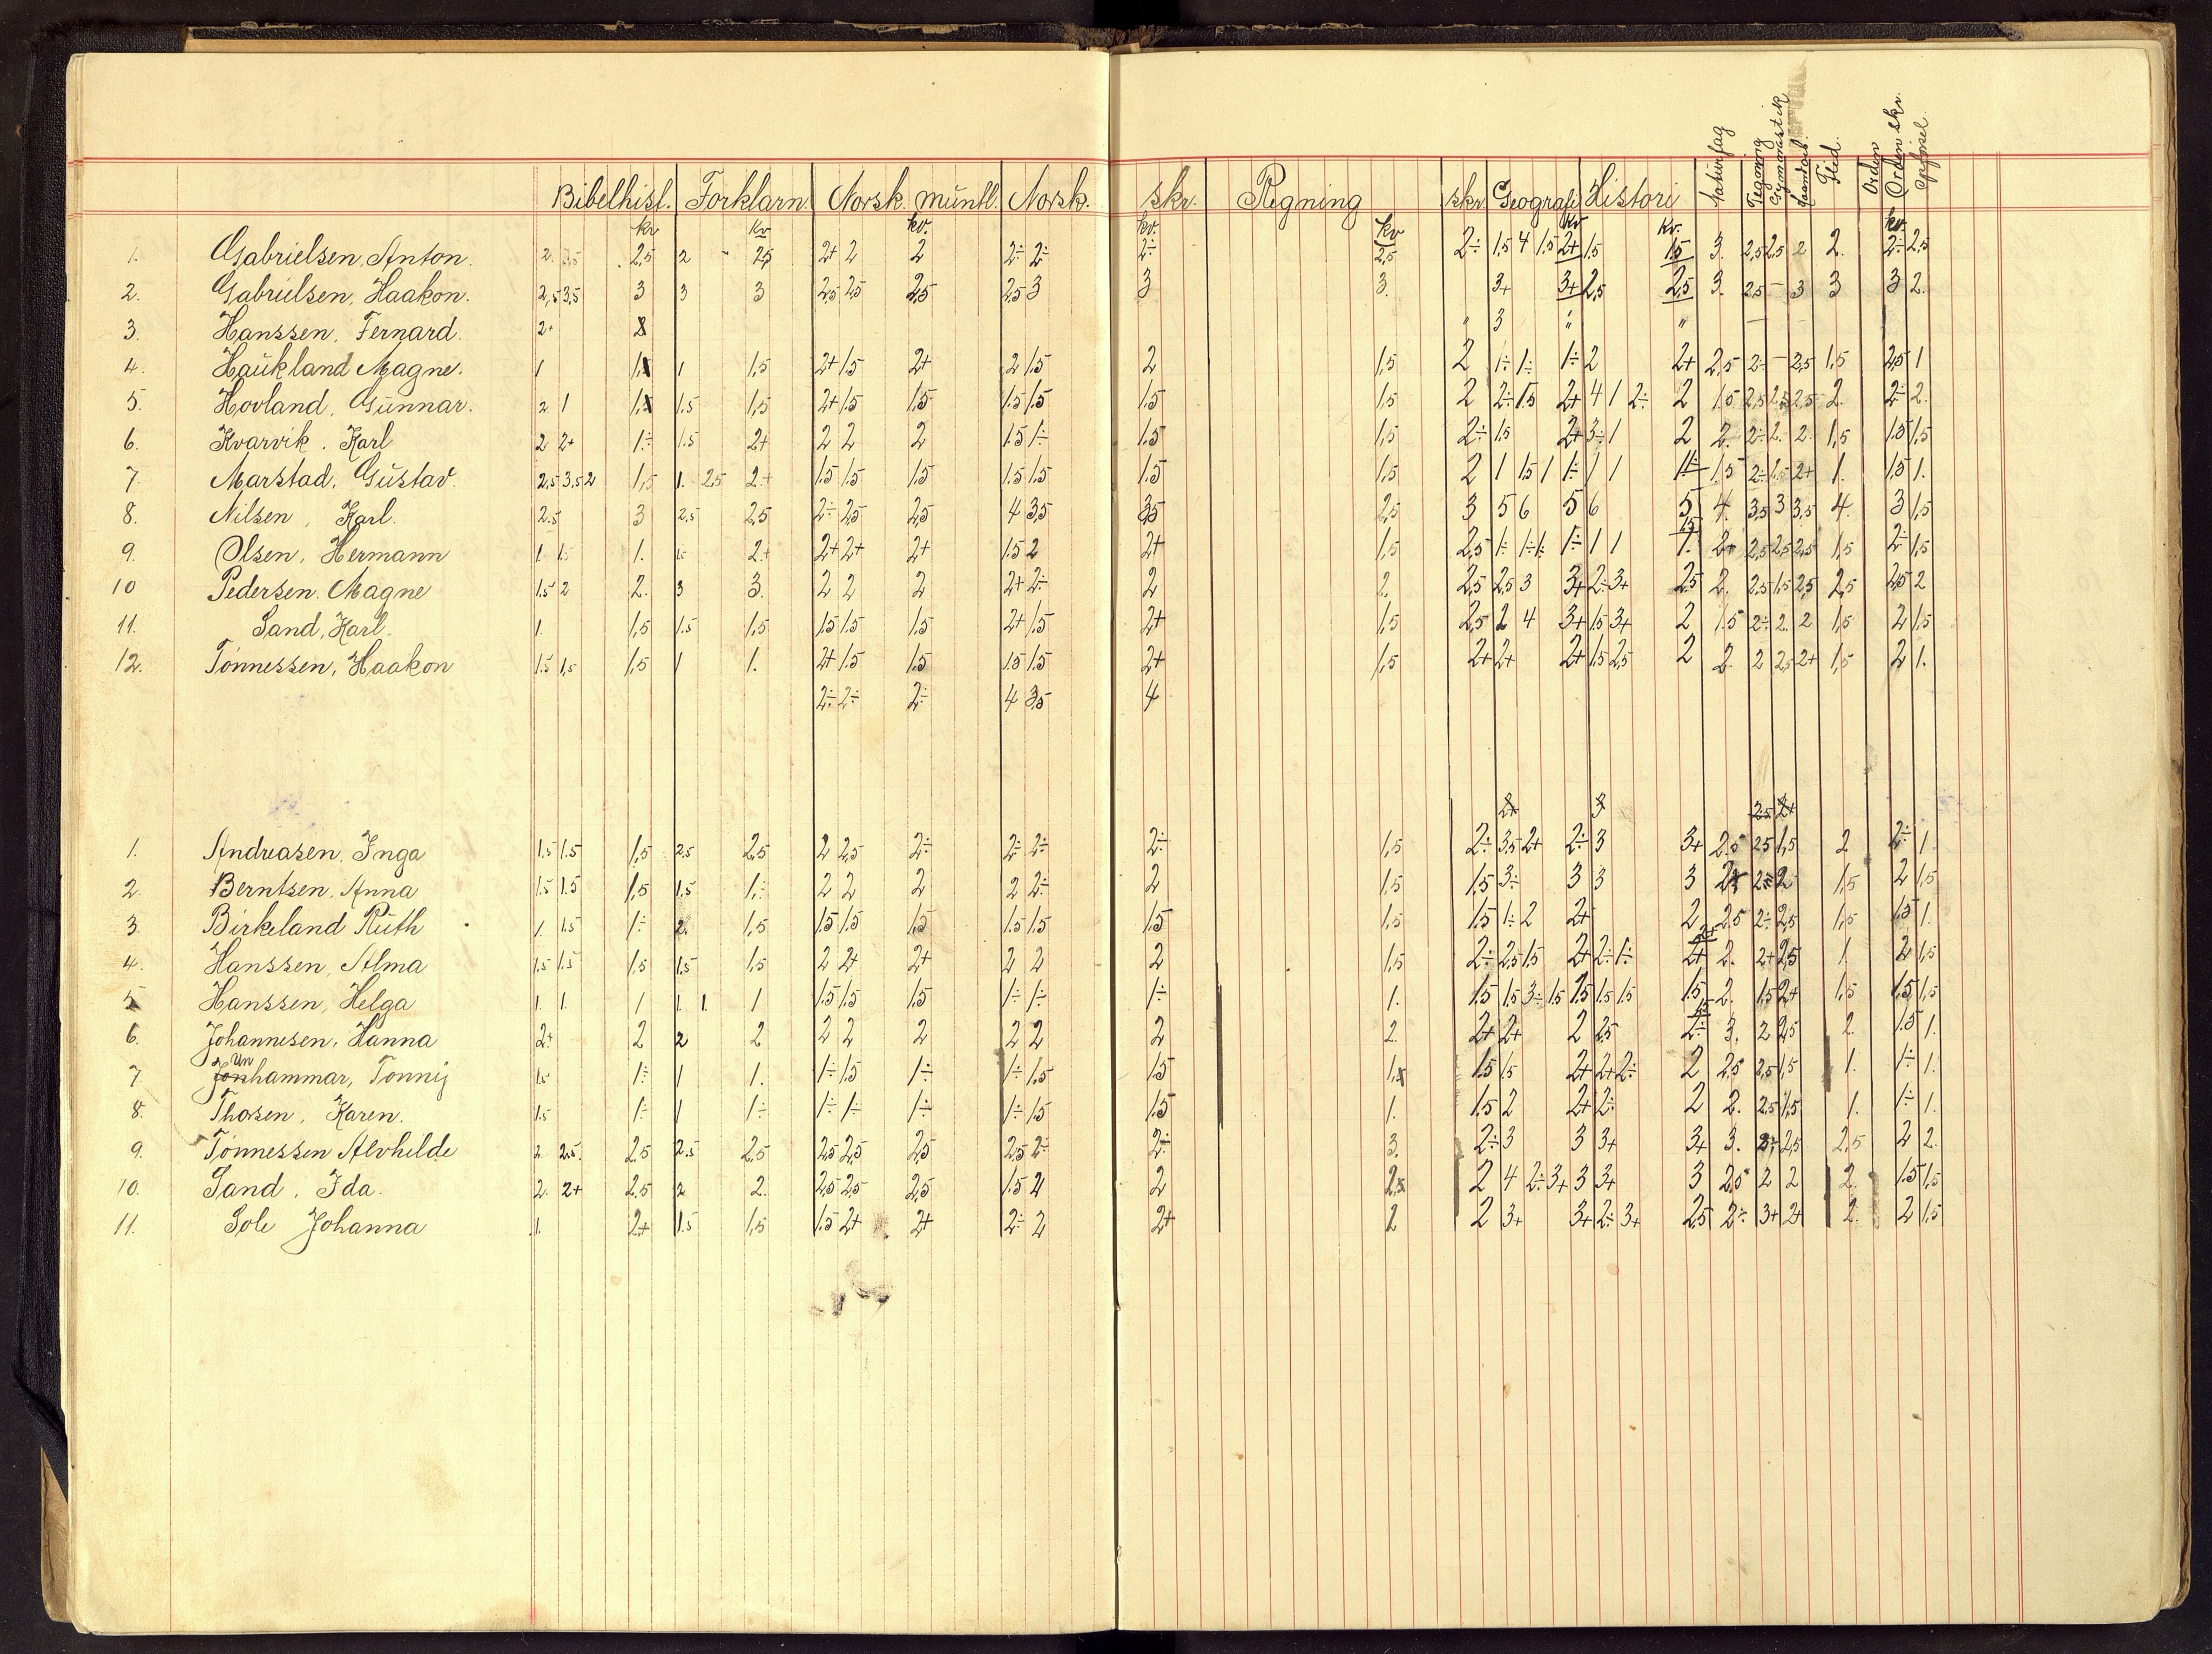 Naturfag Tegning Gymnastik Haandarb. Flid. Orden Orden skr. opførsel
Bibelhist. Forklarn. Norsk. muntl. Norsk. skr. Regning skr. Geografi Histori
kv kv kv. kv. kv kv kv. kv.
1. Gabrielsen, Anton. 2. 2,5 2 2,5 2+ 2 2 2÷ 2÷ 2÷ 2,5 2÷ 1,5 4 1,5 2+ 1,5 1,5 3. 2,5 2,5 2 2. 2÷ 2,5
2. Gabrielsen, Haakon. 2,5 3,5 3 3 3 2,5 2,5 2,5 2,5 3 3 3. 3+ 3+ 2,5 2,5 3. 2,5 – 3 3 3 2.
3. Hanssen, Fernard. 2+ " 3 " " –
4. Haukland Magne. 1 1 1,5 2+ 1,5 2+ 2 1,5 2 1,5 2 1÷ 1÷ 1÷ 2 2+ 2,5 2÷ – 2,5 1,5 2,5 1
5. Hovland, Gunnar. 2 1 1,5 1,5 2+ 1,5 1,5 1.5 1.5 1.5 1,5 2 2÷ 1.5 2+ 4 1 2÷ 2 1.5 2,5 2,5 2,5 2. 2÷ 2.
6. Kvarvik. Karl 2 2+ 1÷ 1.5 2+ 2 2 2 1.5 1÷ 1.5 1,5 2÷ 1,5 2+ 3÷ 1 2 2. 2÷ 2. 2. 1,5 1.5 1,5
7. Marstad, Gustav. 2,5 3,5 2 1,5 1. 2,5 2.+ 1.5 1.5 1.5 1.5 1.5 1.5 1,5 2 1 1.5 1 1÷ 1 1 1÷ 1.5 2÷ 1,5 2+ 1. 1,5 1.
8. Nilsen, Karl. 2.5 3 2,5 2,5 2÷ 2,5 2,5 4 3,5 3,5 2,5 3 5 6 5 6 5 4. 3,5 3 3,5 4. 3 1,5
9. Olsen, Hermann 1. 1÷ 1. 1÷ 2.+ 2+ 2+ 2+ 1.5 2 2+ 1,5 2,5 1÷ 1÷ 1÷ 1÷ 1 1 1,5 1. 2+ 2,5 2,5 2,5 1,5 2÷ 1,5
10 Pedersen. Magne 1.5 2 2. 3 3. 2 2 2 2+ 2÷ 2 2. 2,5 2,5 3 3+ 2÷ 3+ 2,5 2. 2.5 1,5 2,5 2,5 2,5 2
11. Sand, Karl. 1. 1,5 1.5 1,5 1.5 1.5 1.5 2+ 1.5 2+ 1,5 2,5 2 4 3+ 1.5 3+ 2 1.5 2÷ 2. 2 1,5 2 1,5
12. Tönnessen, Haakon 1.5 1,5 1,5 1 1. 2+ 1.5 1.5 1.5 1.5 2+ 1,5 2+ 2+ 2+ 1.5 2,5 2 2. 2 2,5 2+ 1,5 2 1.
2÷ 2÷ 2÷ 4 3,5 4
1. Andreasen, Inga 1.5 1.5 1,5 2.5 2,5 2 2,5 2÷ 2÷ 2÷ 2÷ 1,5 2÷ 3,5 2+ 2÷ 3 3+ 2.5 2.5 1,5 2 2÷ 1.
2. Berntsen, Anna 1.5 1.5 1,5 1.5 1.÷ 2 2 2 2 2÷ 2 1,5 1,5 3÷ 3 3 3 2 1,5 2 1,5
3. Birkeland Ruth 1. 1.5 1÷ 2. 1,5 1.5 1.5 1.5 1.5 1.5 1.5 1,5 1.5 1÷ 2 2+ 2 2.5 2÷ 2,5 1,5 1.5 1.
4. Hanssen, Alma 1.5 1.5 1,5 1.5 1,5 2 2+ 2+ 2 2 2 1,5 2÷ 2,5 1.5 2+ 2÷ 1÷ 2+ 2+ 2. 2+ 2,5 1. 2 1,5
5 Hanssen, Helga 1. 1. 1 1. 1. 1 1.5 1.5 1.5 1÷ 1÷ 1÷ 1. 1.5 1.5 3÷ 1.5 1.5 1.5 1.5 1.5 2. 1.5 2+ 1,5 1.5 1,5
6. Johannesen, Hanna 2+ 2 2 2 2 2 2 2 2 2 2. 2+ 2+ 2 2,5 1,5 2÷ 3. 2 2,5 2. 1.5 1.
7. Jonhammar, Tonny Un 1.5 1÷ 1 1. 1÷ 1.5 1÷ 1÷ 1.5 1.5 1.5 1.5 2+ 2+ 2÷ 2 2.5 2,5 1,5 1. 1÷ 1.
8. Thosen, Karen. 1.5 1÷ 1 1÷ 1÷ 1÷ 1÷ 1÷ 1.5 1.5 1. 1.5 2 2+ 2÷ 2 2. 2.5 1,5 1. 1÷ 1.
9. Tönnessen Alvhilde 2. 2.5. 2,5 2.5 2,5 2,5 2,5 2,5 2,5 2÷ 2÷ 3. 2÷ 3 3 3+ 3+ 3. 2,5 2,5 2 2.
10. Sand, Ida. 2. 2+ 2,5 2 2. 2,5 2,5 2,5 1.5 2 2 2 4 2÷ 3+ 3 3+ 3 2.5 2 2 2. 1.5 1,5
11. Sole Johanna 1. 2+ 1.5 1,5 1.5 2+ 2+ 2÷ 2 2+ 2 2 3+ 3+ 2÷ 3+ 2.5 2÷ 3+ 2+ 2. 2 1,5